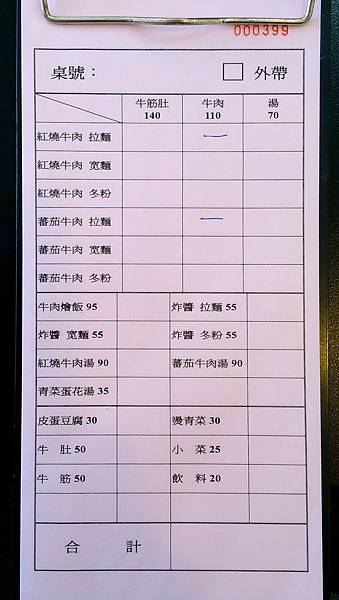 000399
桌號： □ 外帶
牛筋肚 140 牛肉 110 湯 70
紅燒牛肉 拉麵 一
紅燒牛肉 寬麵
紅燒牛肉 冬粉
蕃茄牛肉 拉麵 一
蕃茄牛肉 寬麵
蕃茄牛肉 冬粉
牛肉燴飯 95 炸醬 拉麵 55
炸醬 寬麵 55 炸醬 冬粉 55
紅燒牛肉湯 90 蕃茄牛肉湯 90
青菜蛋花湯 35
皮蛋豆腐 30 燙青菜 30
牛 肚 50 小 菜 25
牛 筋 50 飲 料 20
合 計